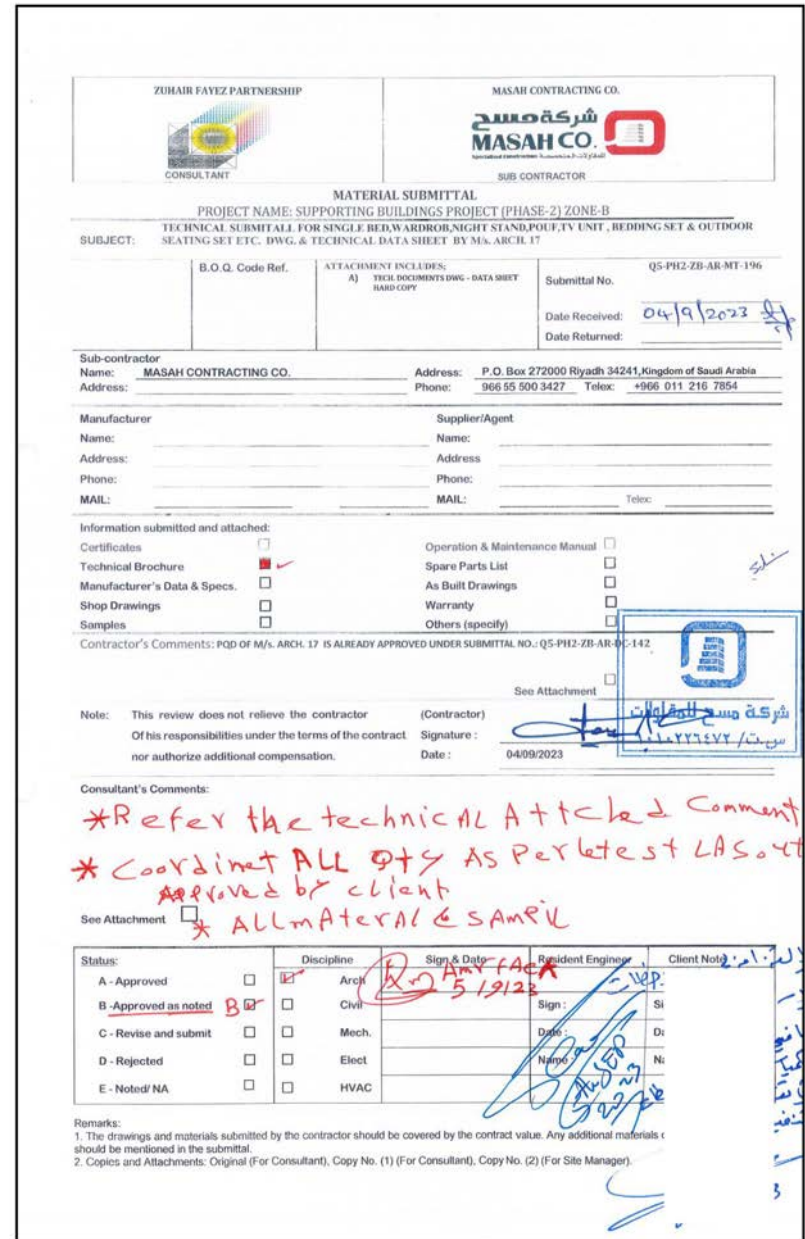 ZUHAIR FAYEZ PARTNERSHIP
CONSULTANT
MASAH CONTRACTING CO.
شركة مسح
MASAH CO.
SUB CONTRACTOR
MATERIAL SUBMITTAL
PROJECT NAME: SUPPORTING BUILDINGS PROJECT (PHASE-2) ZONE-B
SUBJECT: TECHNICAL SUBMITALL FOR SINGLE BED,WARDROB,NIGHT STAND,POUF,TV UNIT , BEDDING SET & OUTDOOR
SEATING SET ETC. DWG. & TECHNICAL DATA SHEET BY M/s. ARCH. 17
B.O.Q. Code Ref.
ATTACHMENT INCLUDES;
A) TECH. DOCUMENTS DWG - DATA SHEET
HARD COPY
Submittal No. Q5-PH2-ZB-AR-MT-196
Date Received: 04/9/2023
Date Returned:
Sub-contractor
Name: MASAH CONTRACTING CO. Address: P.O. Box 272000 Riyadh 34241,Kingdom of Saudi Arabia
Address: Phone: 966 55 500 3427 Telex: +966 011 216 7854
Manufacturer Supplier/Agent
Name: Name:
Address: Address
Phone: Phone:
MAIL: MAIL: Telex:
Information submitted and attached:
Certificates Operation & Maintenance Manual
Technical Brochure Spare Parts List
Manufacturer's Data & Specs. As Built Drawings
Shop Drawings Warranty
Samples Others (specify)
Contractor's Comments: PQD OF M/s. ARCH. 17 IS ALREADY APPROVED UNDER SUBMITTAL NO.: Q5-PH2-ZB-AR-DC-142
See Attachment
شركة مسح للمقاولات
س.ت/ ١٠١٠٢٢٦٤٧٢
Note: This review does not relieve the contractor (Contractor)
Of his responsibilities under the terms of the contract Signature :
nor authorize additional compensation. Date : 04/09/2023
Consultant's Comments:
*Refer the technicAL Attched Comment
* Coordinet ALL Qty AS Per letest LASout
Approved by client
See Attachment * ALL mAterAL & SAmpil
Status: Discipline Sign & Date Resident Engineer Client Note
A - Approved Arch
5/9/23
B -Approved as noted B Civil Sign :
C - Revise and submit Mech. Date :
D - Rejected Elect Name :
E - Noted/ NA HVAC
Remarks:
1. The drawings and materials submitted by the contractor should be covered by the contract value. Any additional materials
should be mentioned in the submittal.
2. Copies and Attachments: Original (For Consultant), Copy No. (1) (For Consultant), Copy No. (2) (For Site Manager).